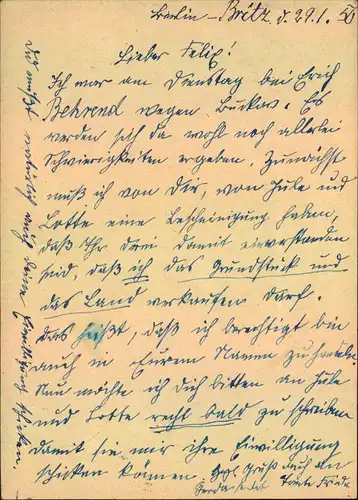 Berlin-Britz d. 29.1. 50
Lieber Felix!
Ich war am Dienstag bei Erich
Behrend wegen Buckow. Es
werden sich da wohl noch allerlei
Schwierigkeiten ergeben. Zunächst
muß ich von Dir, von Jule und
Lotte eine Bescheinigung haben,
daß Ihr drei damit einverstanden
seid, daß ich das Grundstück und
das Land verkaufen darf.
Das heißt, daß ich berechtigt bin
auch in Eurem Namen zu handeln.
Nun möchte ich Dich bitten an Jule
und Lotte recht bald zu schreiben
damit sie mir ihre Einwilligung
schicken können. Hzl. Gruß auch an
Gerda Tante Frieda
Du mußt natürlich auch Deine Einwilligung schicken.